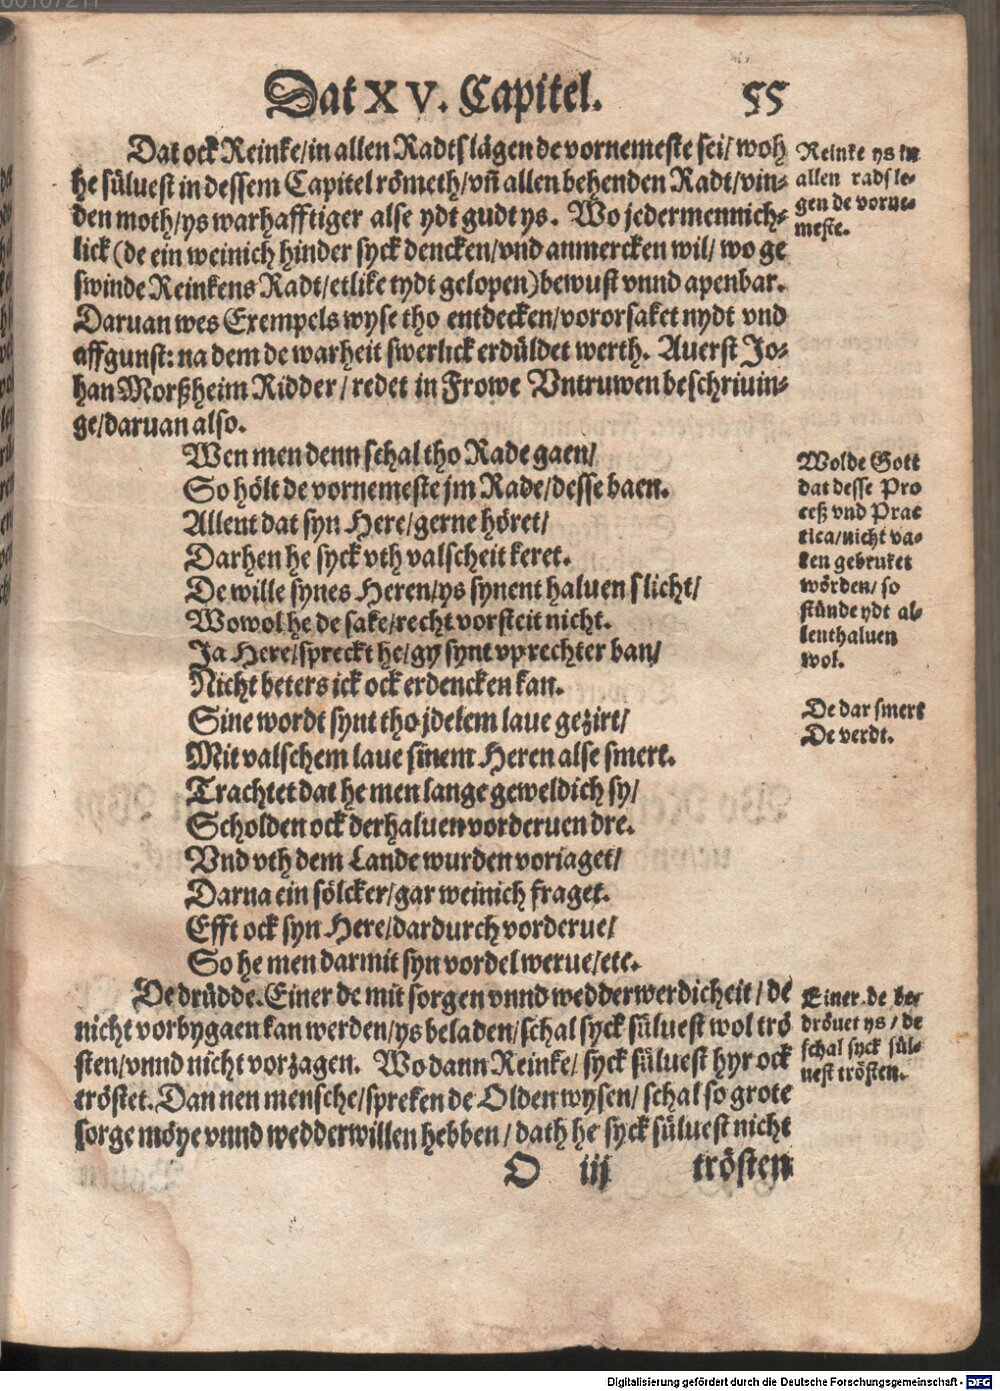 Dat XV. Capitel. 55
Dat ock Reinke/in allen Radtslägen de vornemeste sei/ woh
he sülvest in dessem Capitel römeth/vñ allen behenden Radt/vin-
den moth/ys warhafftiger alse ydt gudt ys. Wo jedermennich-
lick (de ein weinich hinder syck dencken/vnd anmercken wil/ wo ge
swinde Reinkens Radt/etlike tydt gelopen) bewust vnnd apenbar.
Daruan wes Exempels wyse tho entdecken/vororsaket nydt vnd
affgunst: na dem de warheit swerlick erdüldet werth. Auerst Jo-
han Morßheim Ridder/ redet in Frowe Vntruwen beschriuin-
ge/daruan also.
Wen men denn schal tho Rade gaen/
So hölt de vornemeste jm Rade/desse baen.
Allent dat syn Here/gerne höret/
Darhen he syck vth valscheit keret.
De wille synes Heren/ys synent haluen slicht/
Wowol he de sake/recht vorsteit nicht.
Ja Here/spreckt he/gy synt vprechter ban/
Nicht beters ick ock erdencken kan.
Sine wordt synt tho jdelem laue gezirt/
Mit valschem laue sinem Heren alse smert.
Trachtet dat he men lange geweldich sy/
Scholden ock derhaluen vorderuen dre.
Vnd vth dem Lande wurden voriaget/
Darna ein sölcker/gar weinich fraget.
Efft ock syn Here/dardurch vorderue/
So he men darmit syn vordel werue/etc.
De drüdde. Einer de mit sorgen vnnd wedderwerdicheit/ de
nicht vorbygaen kan werden/ys beladen/schal syck süluest wol trö
sten/vnnd nicht vorzagen. Wo dann Reinke/ syck süluest hyr ock
tröstet. Dan nen mensche/spreken de Olden wysen/ schal so grote
sorge möye vnnd wedderwillen hebben/ dath he syck süluest nicht
O iij trösten
Reinke ys in
allen radsle-
gen de vorne-
meste.
Wolde Gott
dat desse Pro
ceß vnd Prac
tica/nicht va-
ken gebruket
wörden/ so
stünde ydt al-
lenthaluen
wol.
De dar smert
De verdt.
Einer de be-
dröuet ys/ de
schal syck sül-
uest trösten.
Digitalisierung gefördert durch die Deutsche Forschungsgemeinschaft - DFG